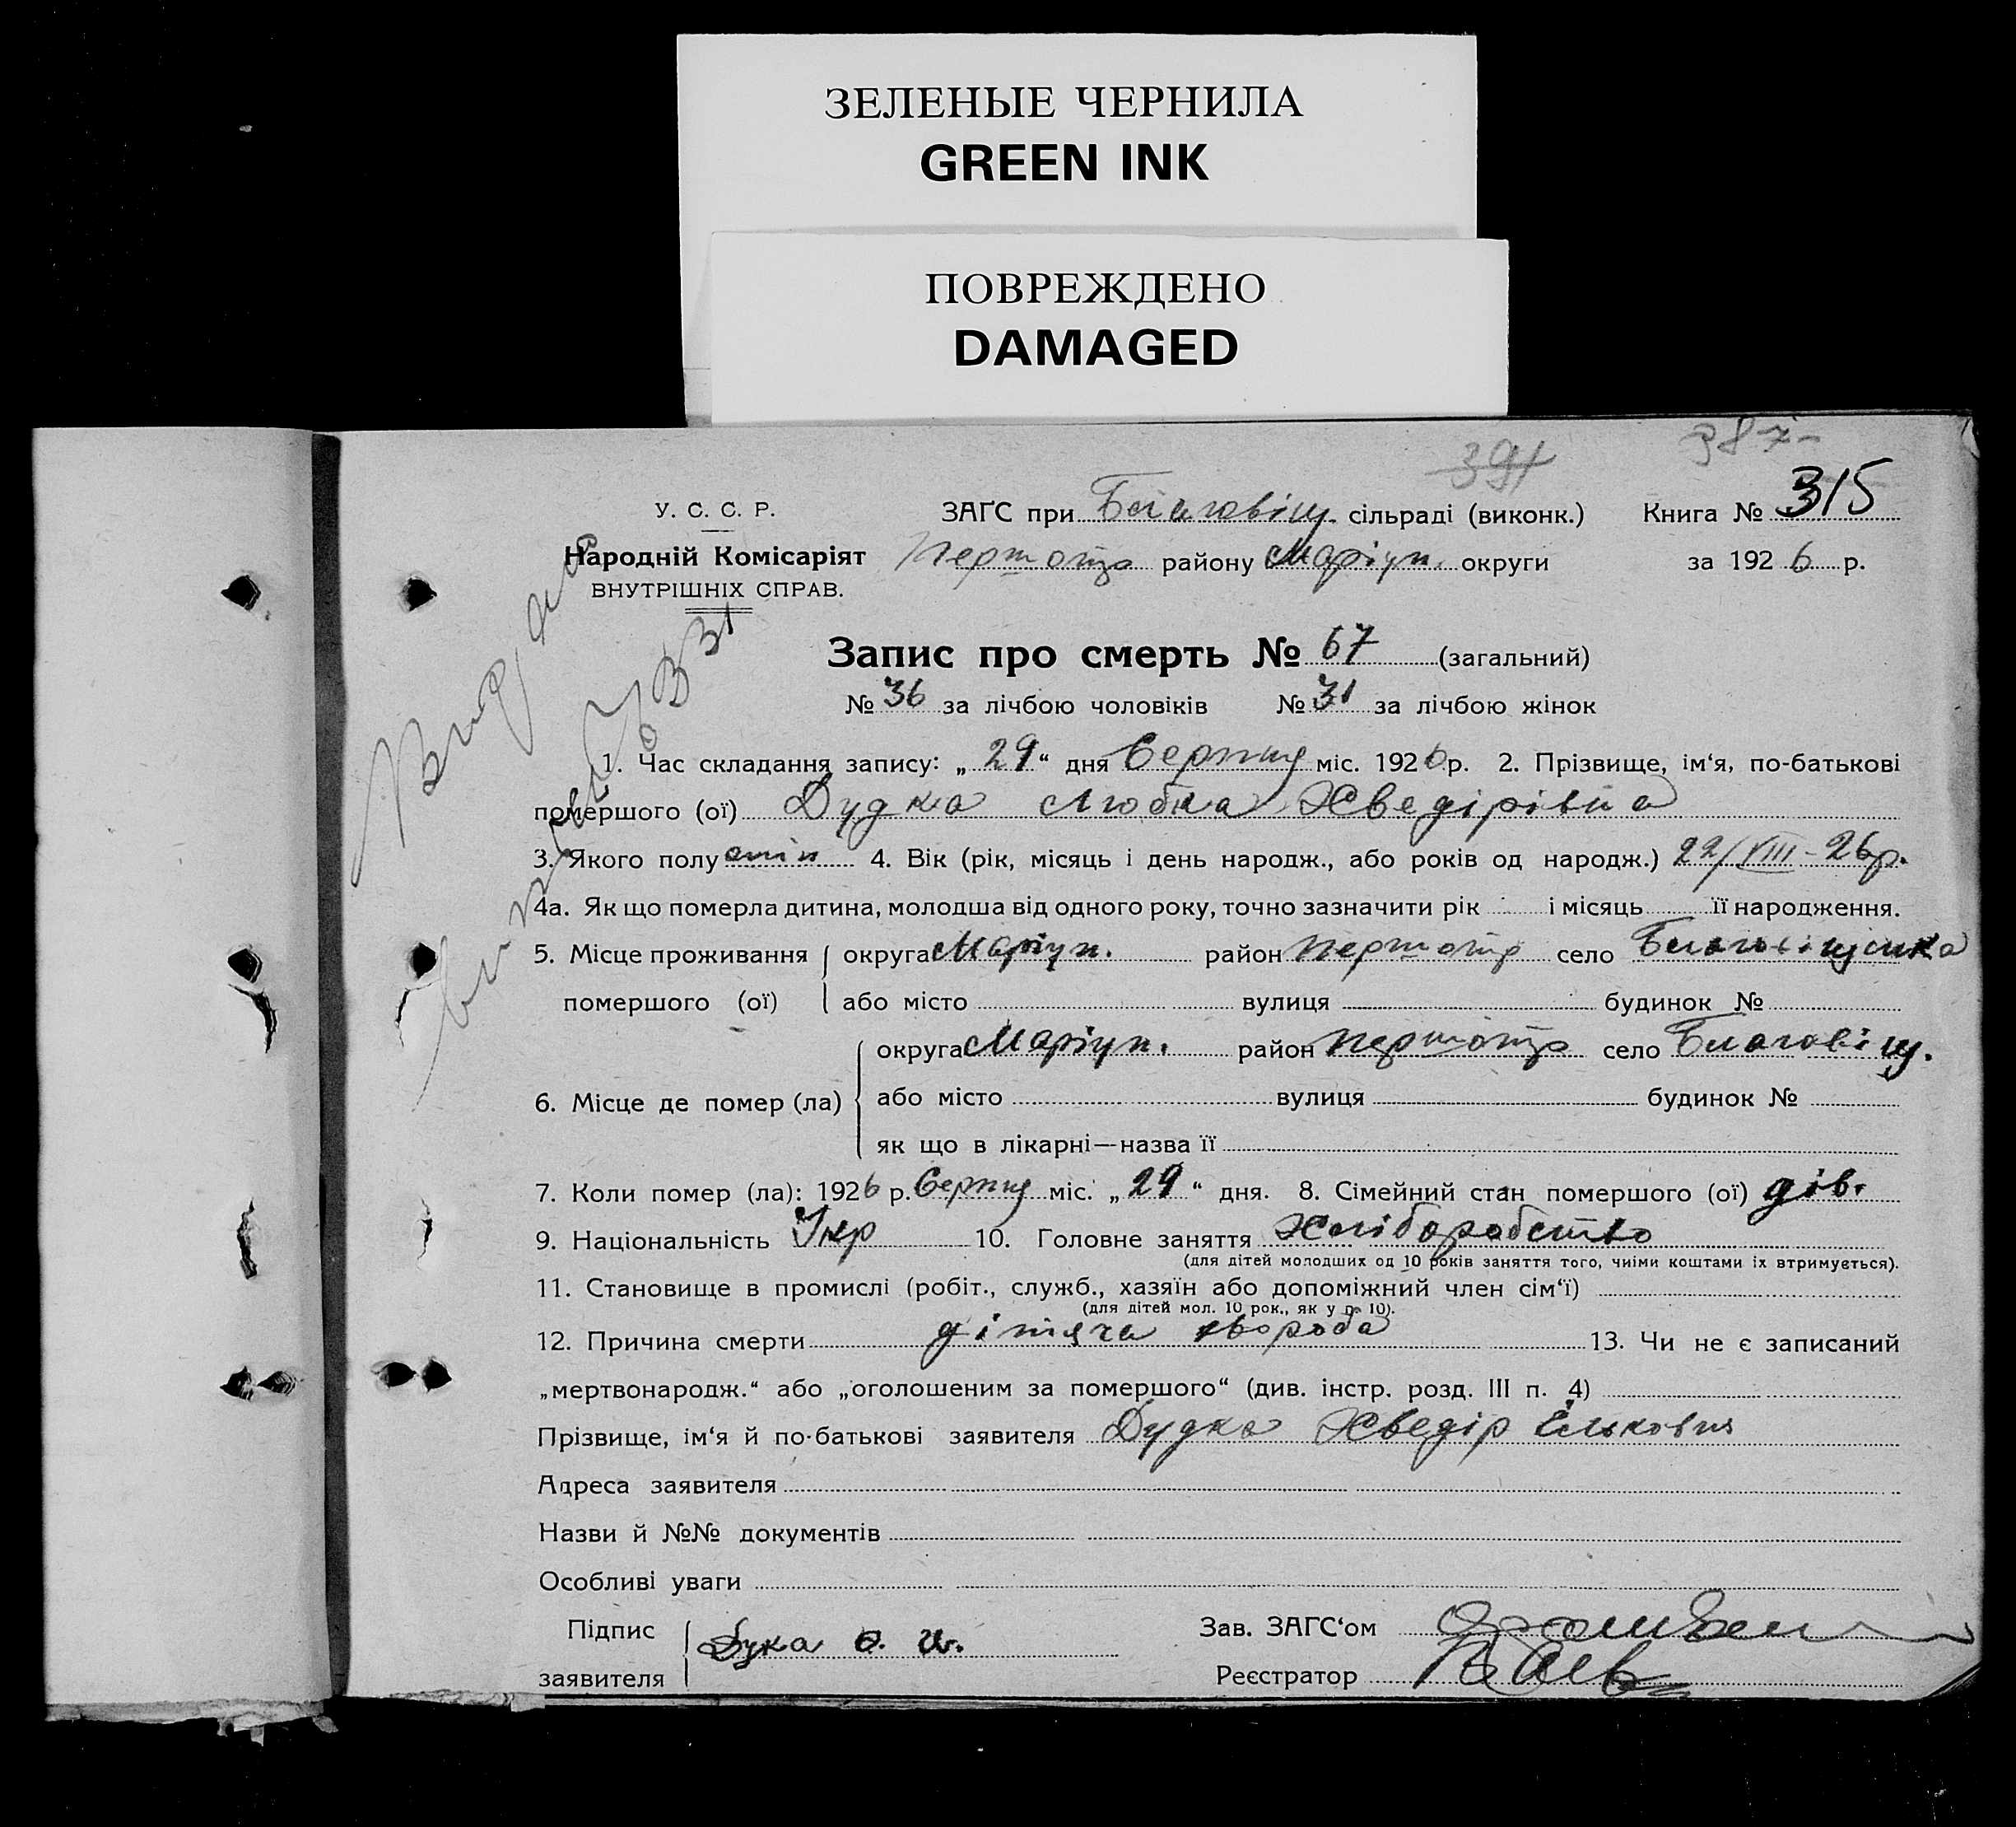 ЗЕЛЕНЫЕ ЧЕРНИЛА
GREEN INK
ПОВРЕЖДЕНО
DAMAGED
391 387
У. С. С. Р. ЗАҐС при Благовіщ. сільраді (виконк.) Книга № 315
Народній Комісаріят району Маріуп. округи за 1926 р.
ВНУТРІШНІХ СПРАВ.
Запис про смерть № 67 (загальний)
№ 36 за лічбою чоловіків № 31 за лічбою жінок
1. Час складання запису: „ 29 “ дня Серпня міс. 1926 р. 2. Прізвище, ім‘я, по-батькові
помершого (ої) Дудка Любка Хведірівна
3. Якого полу 4. Вік (рік, місяць і день народж., або років од народж.) 22/VIII-26р.
4а. Як що померла дитина, молодша від одного року, точно зазначити рік і місяць її народження.
5. Місце проживання округа Маріуп. район село
помершого (ої) або місто вулиця будинок №
округа Маріуп. район село Благовіщ.
6. Місце де помер (ла) або місто вулиця будинок №
як що в лікарні—назва її
7. Коли помер (ла): 1926 р. Серпня міс. „ 29 “ дня. 8. Сімейний стан помершого (ої) дів.
9. Національність Укр 10. Головне заняття Хліборобство
(для дітей молодших од 10 років заняття того, чиїми коштами їх втримується).
11. Становище в промислі (робіт., служб., хазяїн або допоміжний член сім‘ї)
(для дітей мол. 10 рок., як у п. 10).
12. Причина смерти дітяча хвороба 13. Чи не є записаний
„мертвонародж.“ або „оголошеним за помершого“ (див. інстр. розд. III п. 4)
Прізвище, ім‘я й по-батькові заявителя Дудка Хведір
Адреса заявителя
Назви й №№ документів
Особливі уваги
Підпис Зав. ЗАГС‘ом
заявителя Реєстратор